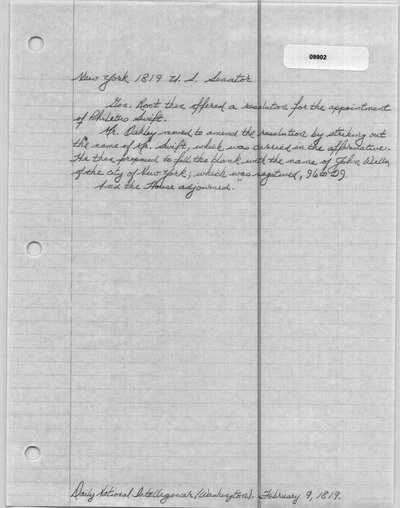 09902
New York 1819 U. S. Senator
Gen. Root then offered a resolution for the appointment
of Philetus Swift.
"Mr. Oakley moved to amend the resolution by striking out
the name of Mr. Swift, which was carried in the affirmative.
He then proposed to fill the blank with the name of John Wells,
of the city of New York; which was negatived, 96 to 29.
And the House adjourned."
Daily National Intelligencer (Washington). February 9, 1819.